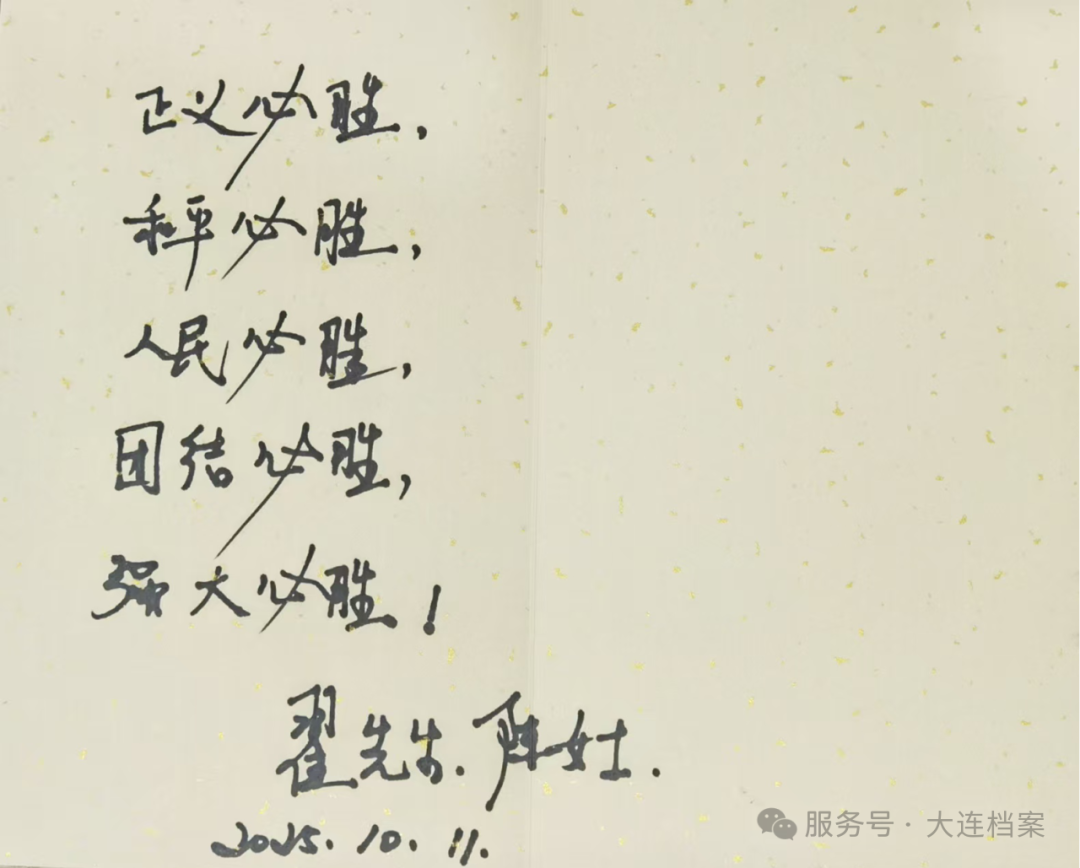 正义必胜，
和平必胜，
人民必胜，
团结必胜，
强大必胜！
翟先生.陈女士.
2025.10.11.
服务号·大连档案